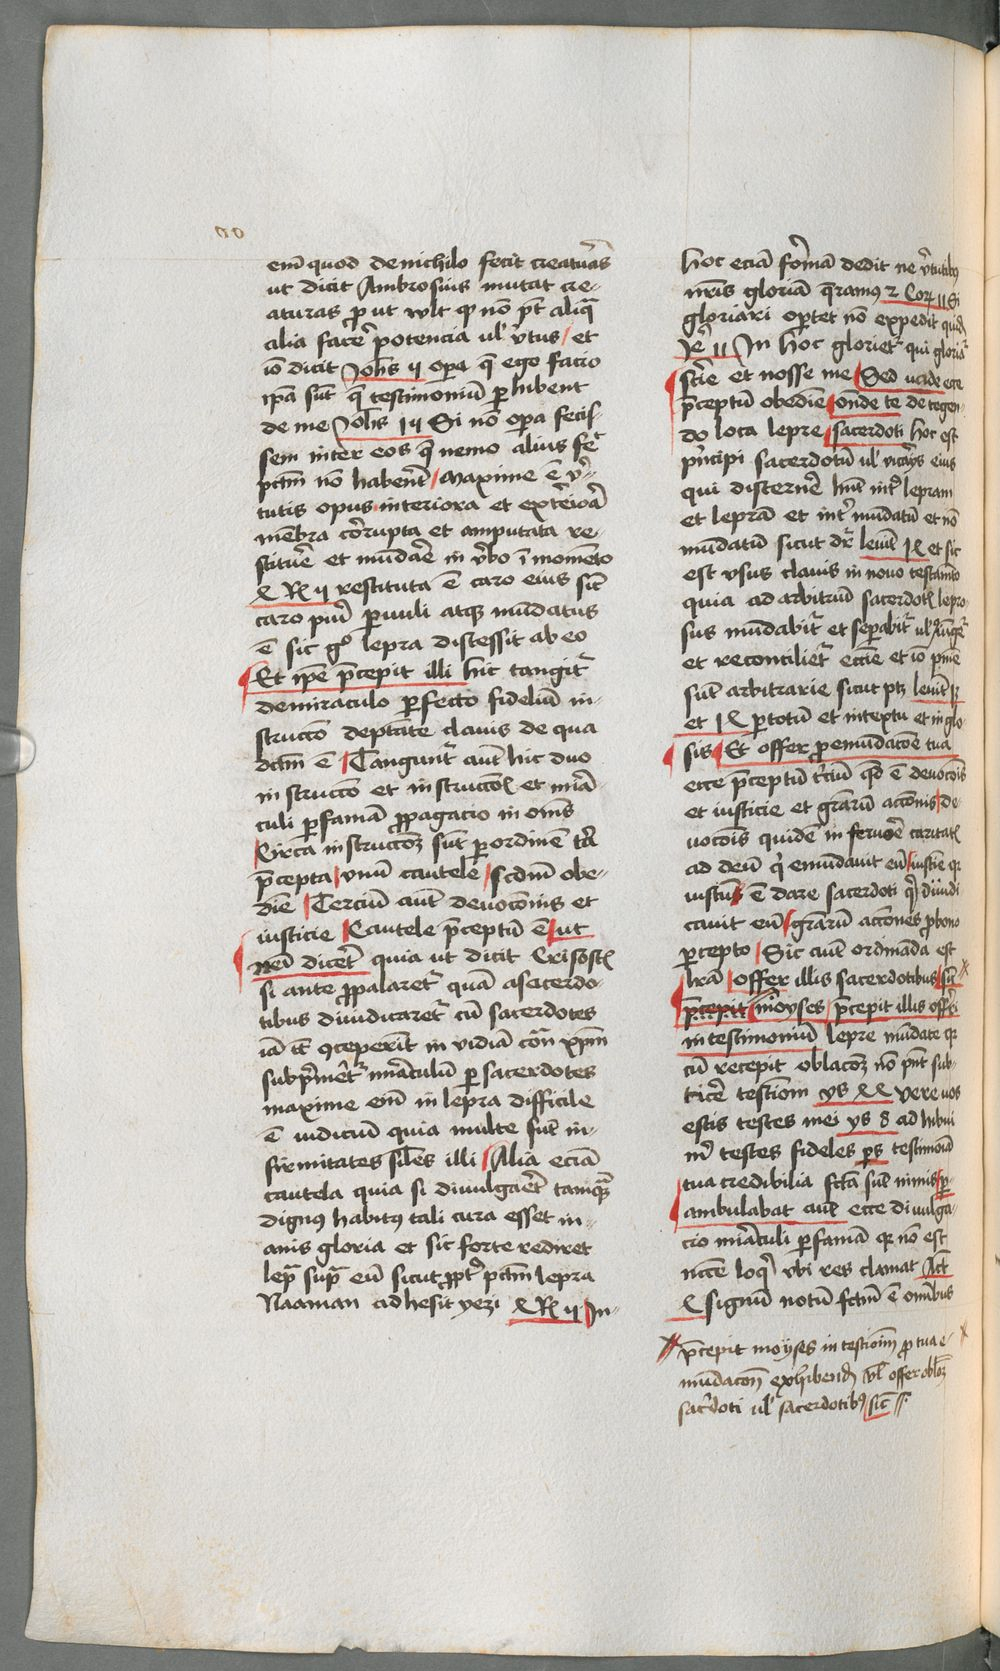 em̄ quod de nichilo fecit creatur̄as
ut dicit Ambrosius mutat cre-
aturas ꝓut vult ꝙ nō pt̄ aliq̄
alia facer̄ potencia ul' v̄tus / et
iō dicit Joh̄is ij oꝑa q̄ ego facio
ip̄a sūt q̄ testimoniū ꝑhibent
de me Joh̄is 14 Si nō oꝑa fecis-
sem inter eos q̄ nemo alius fec̄
pctm̄ nō haberent̄ / Maxime ē v̄-
tutis opus interiora et exteriora
mēbra cōrrupta et amputata re-
stituer̄ et mūdar̄e in v̄bo ī momēto
4 Rͨ ij restituta ē caro eius sic̄
caro pueri ꝑuuli atqꝫ mūdatus
ē sic gͦ lepra discessit ab eo
Et ip̄e p̄cepit illi hic tangit̄
de miraculo ꝑfecto fideliū in-
struccō deptate clauis de qua
dctm̄ ē / Tangunt̄ aūt hic duo
instruccō et instruccōis et mirā-
culi ꝑ famā ꝓpagacio in om̄s
Circa instruccōꝫ sūt ꝑ ordinē tr̄a
p̄cepta / vnū cautele / scdm̄ obe-
diē / Terciū aūt deuoconis et
iusticie / Cautele p̄ceptū ē / ut
nem̄ dicer̄et quia ut dicit Crisost
si ante ꝓpalaret̄ quā a sacerdo-
tibus diiudicaret̄ cū sacerdotes
iā ꝯceperīt in vidiā cont̄ xp̄m
subp̄meret̄ miraculū ꝑ sacerdotes
maxime em̄ in lepra difficile
ē iudiciū quia multe sūt in-
firmitates siles illi / Alia eciā
cautela quia si diuulgaret̄ tamqꝫ
dignꝰ habitꝰ tali cura esset in-
anis gloria et sic forte rediret
lep̄ sup̄ eū sicut ꝓpt̄ pctm̄ lepra
Naaman adhesit yezi 4 Rͨ ij / In-
hoc eciā formā dedit ne v̄tutibꝰ
nr̄is gloriā q̄ramꝰ 2 Corꝫ 11 Si
gloriari oportet nō expedit quidē
Jer̄ 11 In hoc gloriet̄ qui gloriat̄
scīre et nosse me / Sed uade ecce
p̄ceptū obediē / onde te detegen-
do loca lepre / sacerdoti hoc est
p̄ncipi sacerdotū ul' vicarijs eius
qui discerner̄e hnt̄ int̄ lepram
et leprā et int̄ mūdatū et nō
mūdatū sicut dr̄ leuit̄ 14 et sic
est vsus clauis in nouo testamēto
quia ad arbitriū sacerdotꝭ lepro-
sus mūdabit̄ et seꝑabit̄ ul' ꝯiūget̄
et reconciliet̄ eccīe et iō pnīe
sūt arbitrarie sicut ptꝫ leuit 13
et 14 ꝑ totū et in textu et in glo-
sis / Et offer ꝓ emūdacōe tua
ecce p̄ceptū t̄ciū qd̄ ē deuocōis
et iusticie et gr̄arū accōnis / de-
uocōis quidē in feruore caritatꝭ
ad deū qi emūdauit eū / iusticie qꝫ
iustū ē dare sacerdoti qi diiudi-
cauit eū / gr̄arū accōnes ꝓ bono
ꝑcepto / Sic aūt ordināda est
lrā / offer illis sacerdotibus / sic̄ ✕
p̄cepit moyses / p̄cepit illis offeri
in testimoniū lepre mūdate qꝫ
cū recepit oblacōꝫ nō pnt̄ sub-
ticer̄e testīom ys 44 vere uos
estis testes mei ys 8 adhibui
m̄ testes fideles ps̄ testimoniā
tua credibilia fctā sūt nimis / ꝑ-
ambulabat aūt ecce diuulga-
cio miraculi ꝑ famā qꝫ nō est
necc̄e loqͥ vbi res clamat Act
4 signū notū fctm̄ ē omībus
✕ p̄cepit moyses in testiom̄ ꝓ tua e- ✕
mūdacōn exhibend̄ vl' offer oblōꝫ
sac̄doti ul' sacerdotibꝰ / sic̄